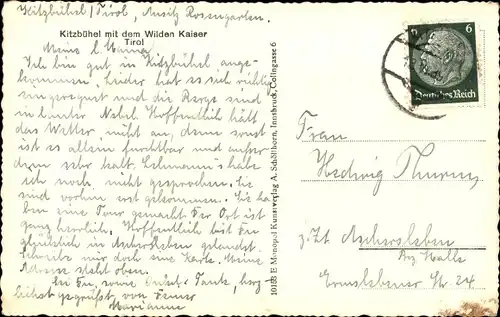 Kitzbühel/Tirol, Ansitz Rosengarten.
Kitzbühel mit dem Wilden Kaiser
Tirol
Meine l. Mama!
Ich bin gut in Kitzbühel ange-
kommen. Leider hat es sich richtig
eingeregnet und die Berge sind
in lauter Nebel. Hoffentlich hält
das Wetter nicht an, denn sonst
ist es allem furchtbar und außer-
dem sehr kalt. Lehmann's habe
ich noch nicht gesprochen. Sie
sind vorhin erst gekommen. Sie ha-
ben eine Tour gemacht. Der Ort ist
ganz herrlich. Hoffentlich bist Du
glücklich in Aschersleben gelandet.
Schreibe mir doch eine Karte. Meine
Adresse steht oben.
Sei Du, sowie Onkel + Tante, herz-
lichst gegrüßt, von Deiner
Marianne
10183 E Monopol Kunstverlag A. Schöllhorn, Innsbruck, Colingasse 6
6
Deutsches Reich
Frau
Hedwig
z. Zt. Aschersleben
Bez. Halle
Ermslebener Str. 24